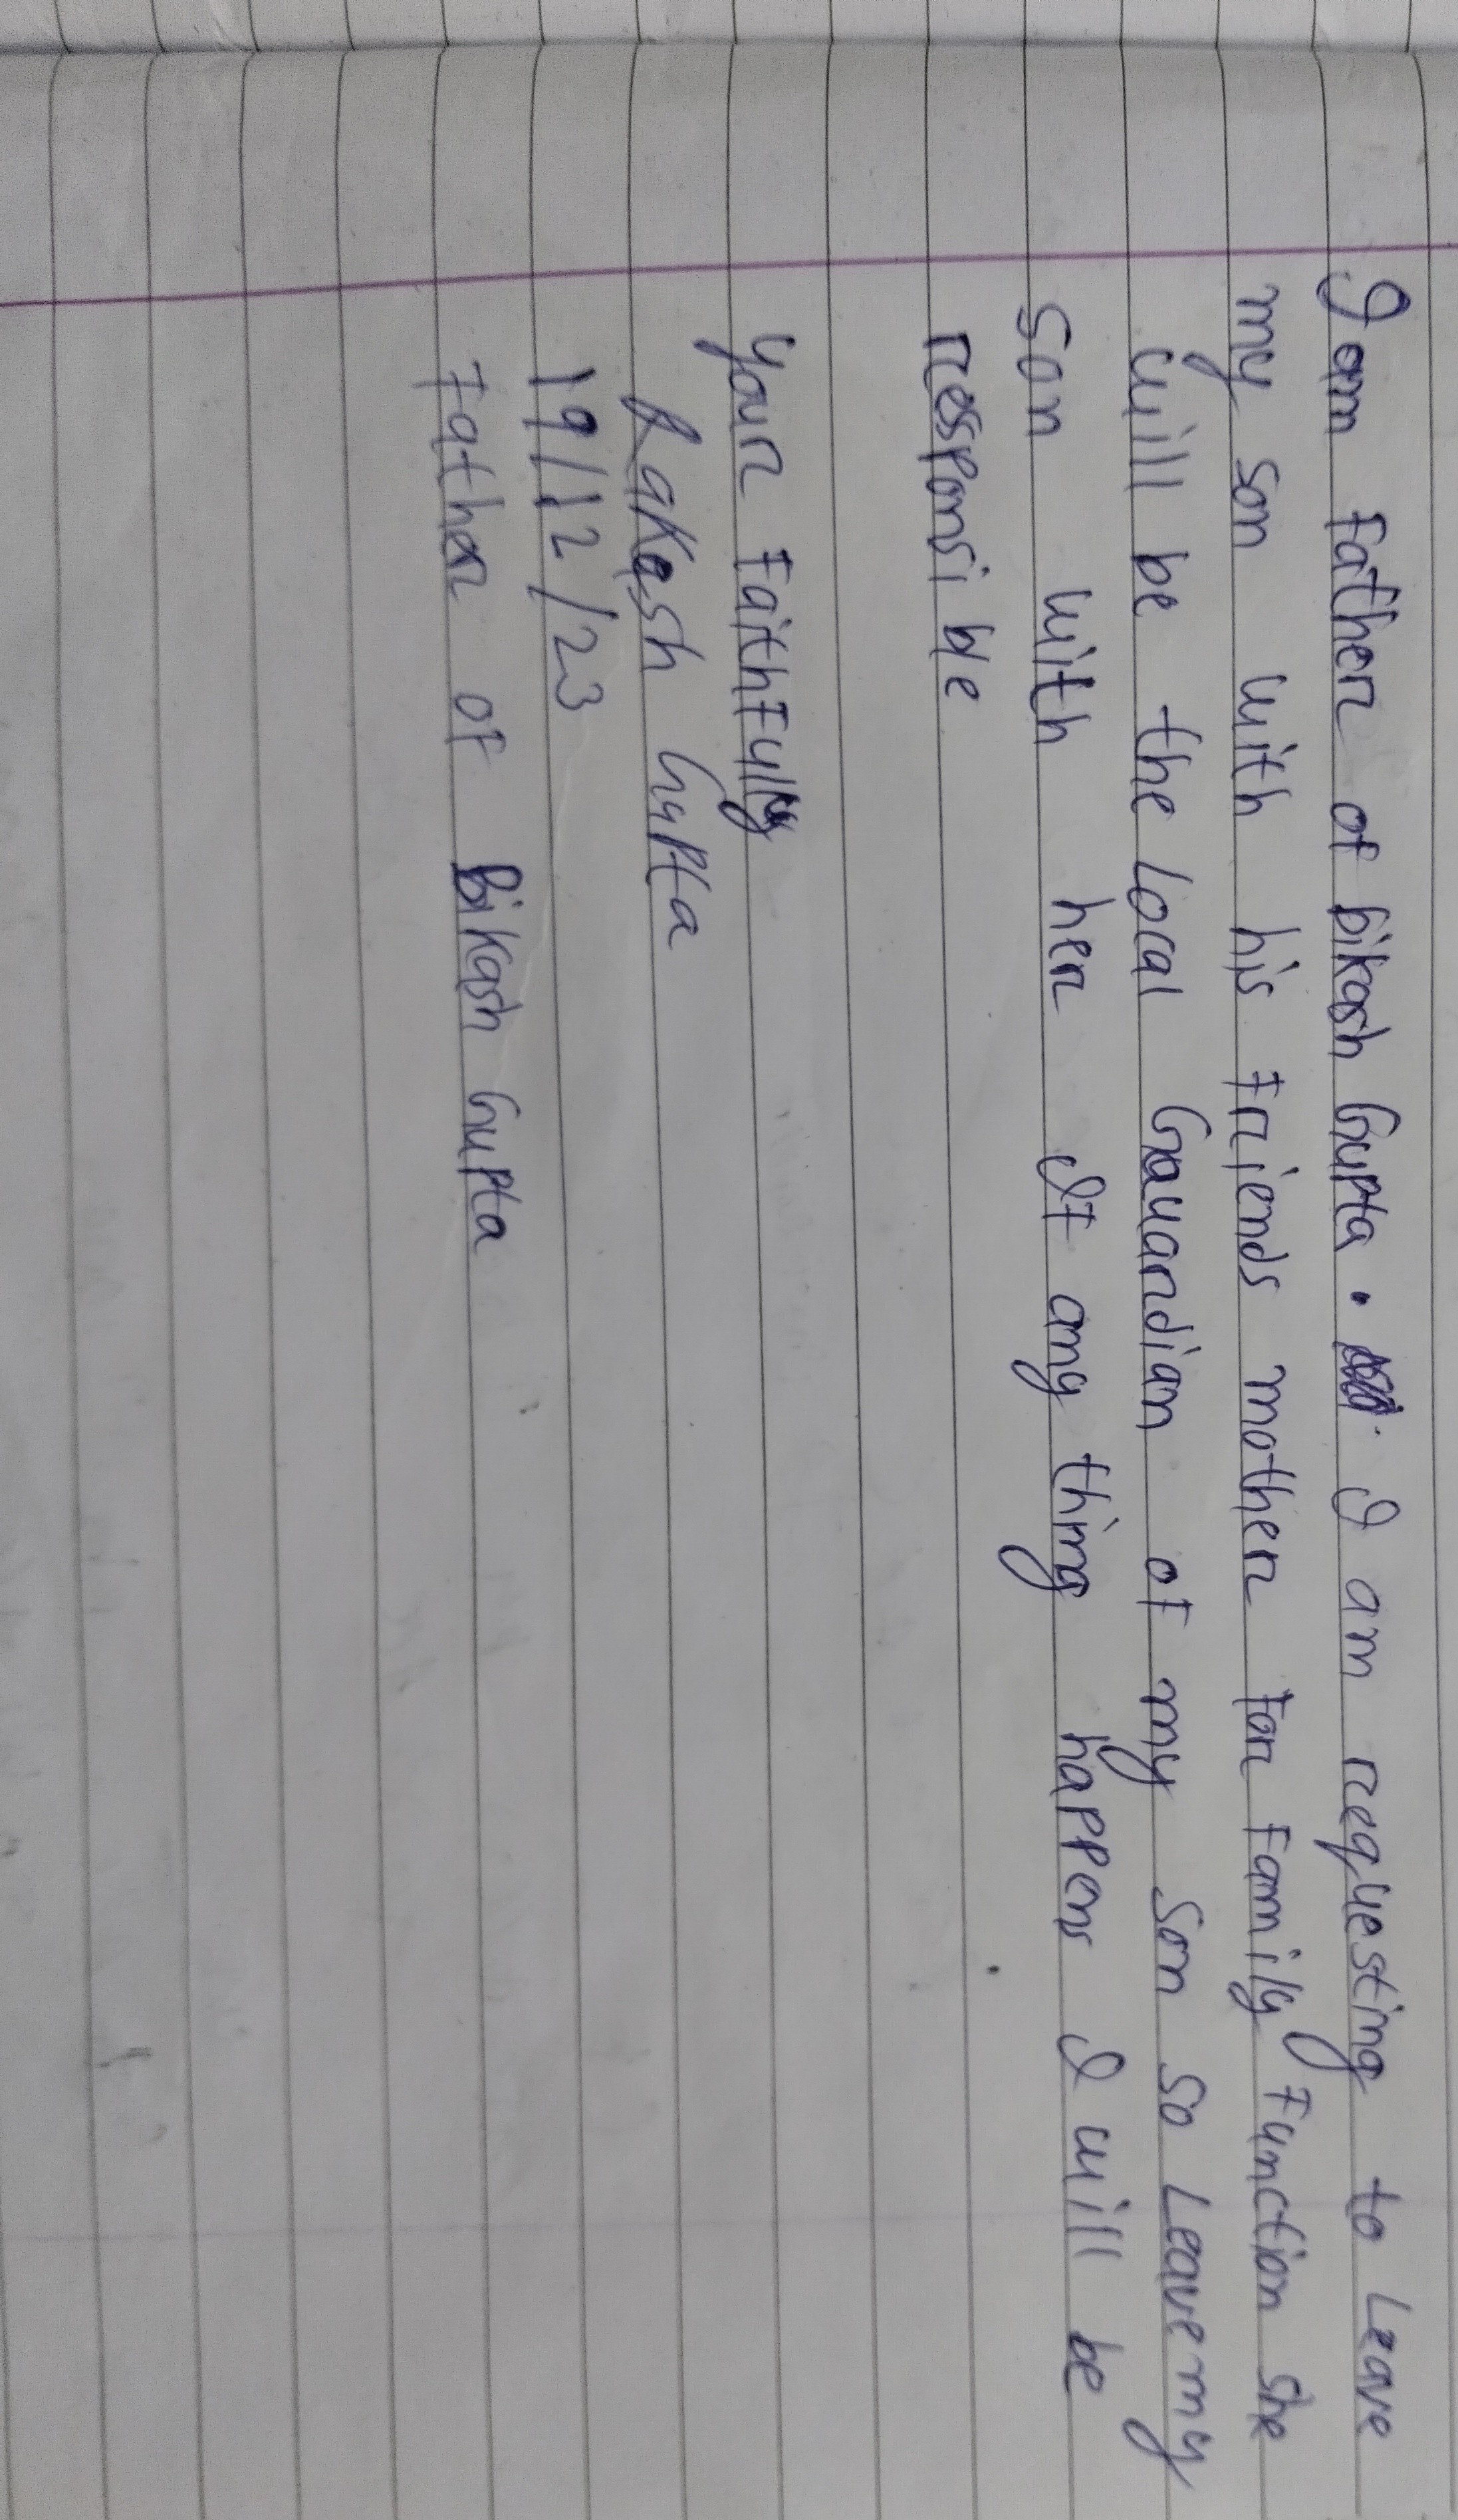 I am Father of bikash Gupta. I am requesting to Leave
my son with his Friends mother For Family Function she
will be the Local Gauardian of my son so Leave my
son with her If any thing happens I will be
responsible
Your FaithFully
Rakesh Gupta
19/12/23
Father of Bikash Gupta